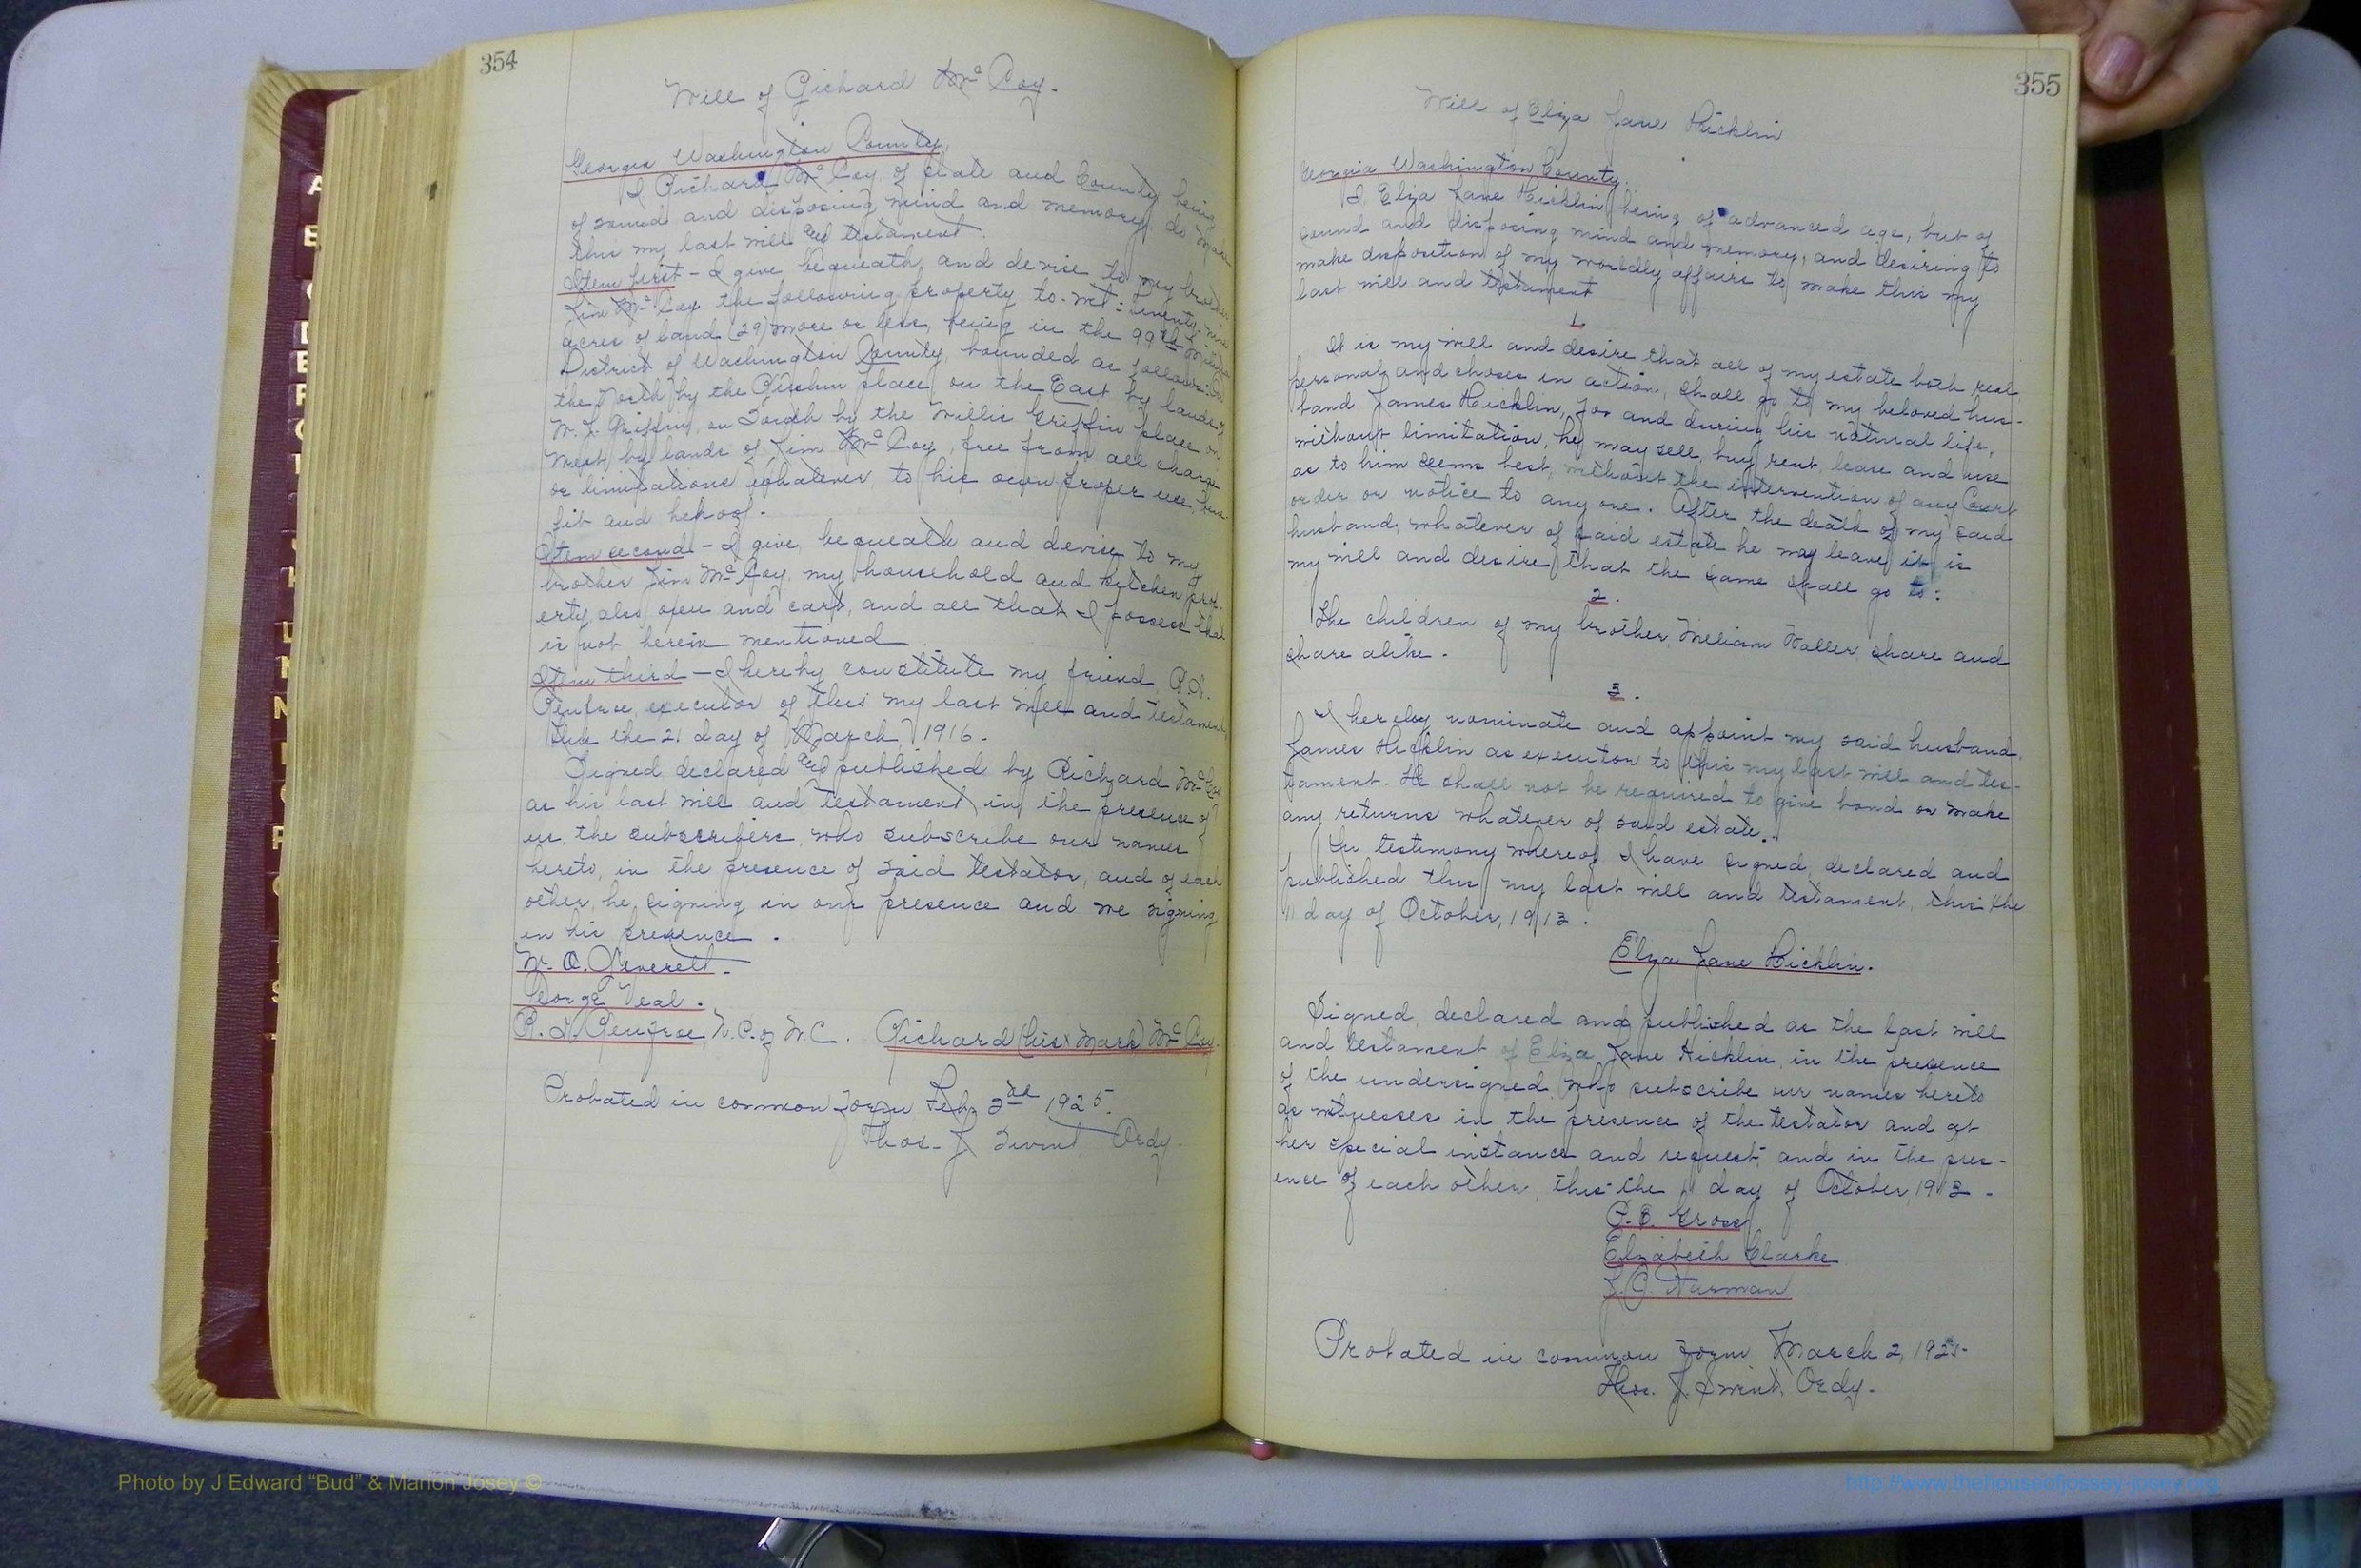 354
Will of Richard McCoy.
Georgia Washington County,
I Richard McCoy of state and County being
of sound and disposing mind and memory, do make
this my last will and testament.
Item first - I give, bequeath, and devise to my brother
Jim McCoy the following property to-wit: twenty nine
acres of land (29) more or less, being in the 99th
District of Washington County, bounded as follows: On
the North by the place, on the East by lands of
W. L. Griffin, on South by the Willis Griffin place on
West by lands of Jim McCoy, free from all charge
or limitations whatever, to his own proper use, bene-
fit and behoof.
Item second - I give, bequeath and devise to my
brother Jim McCoy, my household and kitchen prop-
erty, also oxen and cart, and all that I possess that
is not herein mentioned
Item third - I hereby constitute my friend R.L.
Renfroe, executor of this my last will and testament,
this the 21 day of March, 1916.
Signed declared and published by Richard McCoy
as his last will and testament in the presence of
us, the subscribers, who subscribe our names
hereto, in the presence of said testator, and of each
other, he signing in our presence and we signing
in his presence.
W. O.
George Veal.
R. L. Renfroe N.P. of W.C. Richard (his x Mark) McCoy.
Probated in common form Feb 2nd 1925.
Thos. J. Swint, Ordy.
355
Will of Eliza Jane Hicklin
Georgia Washington County.
I, Eliza Jane Hicklin being of advanced age, but of
sound and disposing mind and memory, and desiring to
make disposition of my worldly affairs to make this my
last will and testament
1.
It is my will and desire that all of my estate both real
personal and choses in action, shall go to my beloved hus-
band, James Hicklin, for and during his natural life,
without limitation, he may sell, buy, rent, lease and use
as to him seems best, without the intervention of any Court
order or notice to any one. After the death of my said
husband, whatever of said estate he may leave it is
my will and desire that the same shall go to:
2.
The children of my brother, William Waller, share and
share alike.
3.
I hereby nominate and appoint my said husband,
James Hicklin as executor to this my last will and tes-
tament. He shall not be required to give bond or make
any returns whatever of said estate.
In testimony whereof I have signed, declared and
published this my last will and testament, this the
11 day of October, 1913.
Eliza Jane Hicklin.
Signed, declared and published as the last will
and testament of Eliza Jane Hicklin, in the presence
of the undersigned, who subscribe our names hereto
as witnesses in the presence of the testator and at
her special instance and request, and in the pres-
ence of each other, this the 11 day of October, 1913.
Gross
Elizabeth Clarke
J. C. Harman
Probated in common form March 2, 1925-
Thos. J. Swint, Ordy.
Photo by J Edward “Bud” & Marion Josey ©
http://www.thehouseofjossey-josey.org